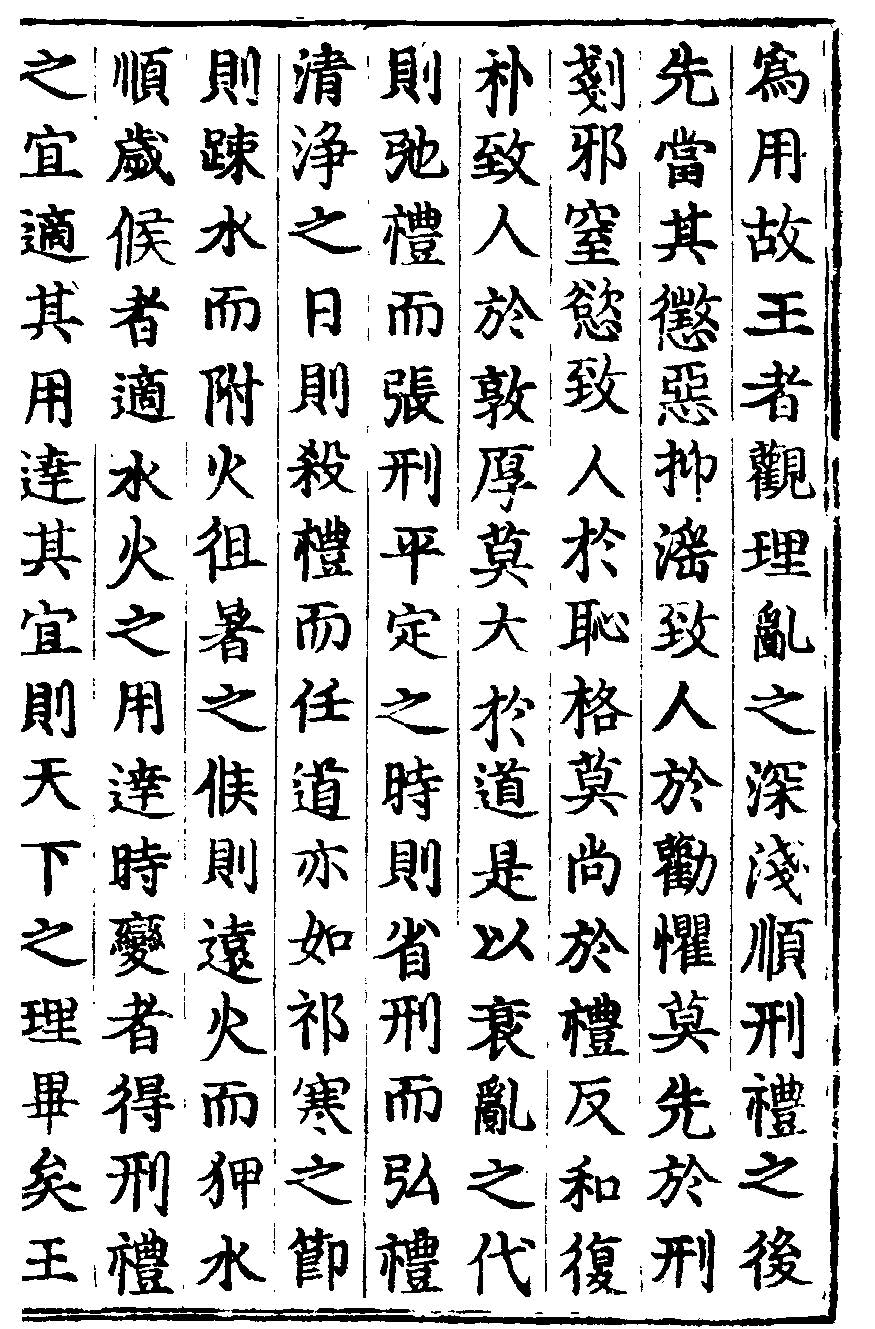 爲用故王者觀理亂之深淺順刑禮之後
先當其懲惡抑滛致人於勸懼莫先於刑
剗邪窒慾致人於恥格莫尚於禮反和復
朴致人於敦厚莫大於道是以衰亂之代
則弛禮而張刑平定之時則省刑而弘禮
清浄之日則殺禮而任道亦如祁寒之節
則踈水而附火徂暑之候則遠火而狎水
順歲候者適水火之用達時變者得刑禮
之宜適其用達其宜則天下之理畢矣王